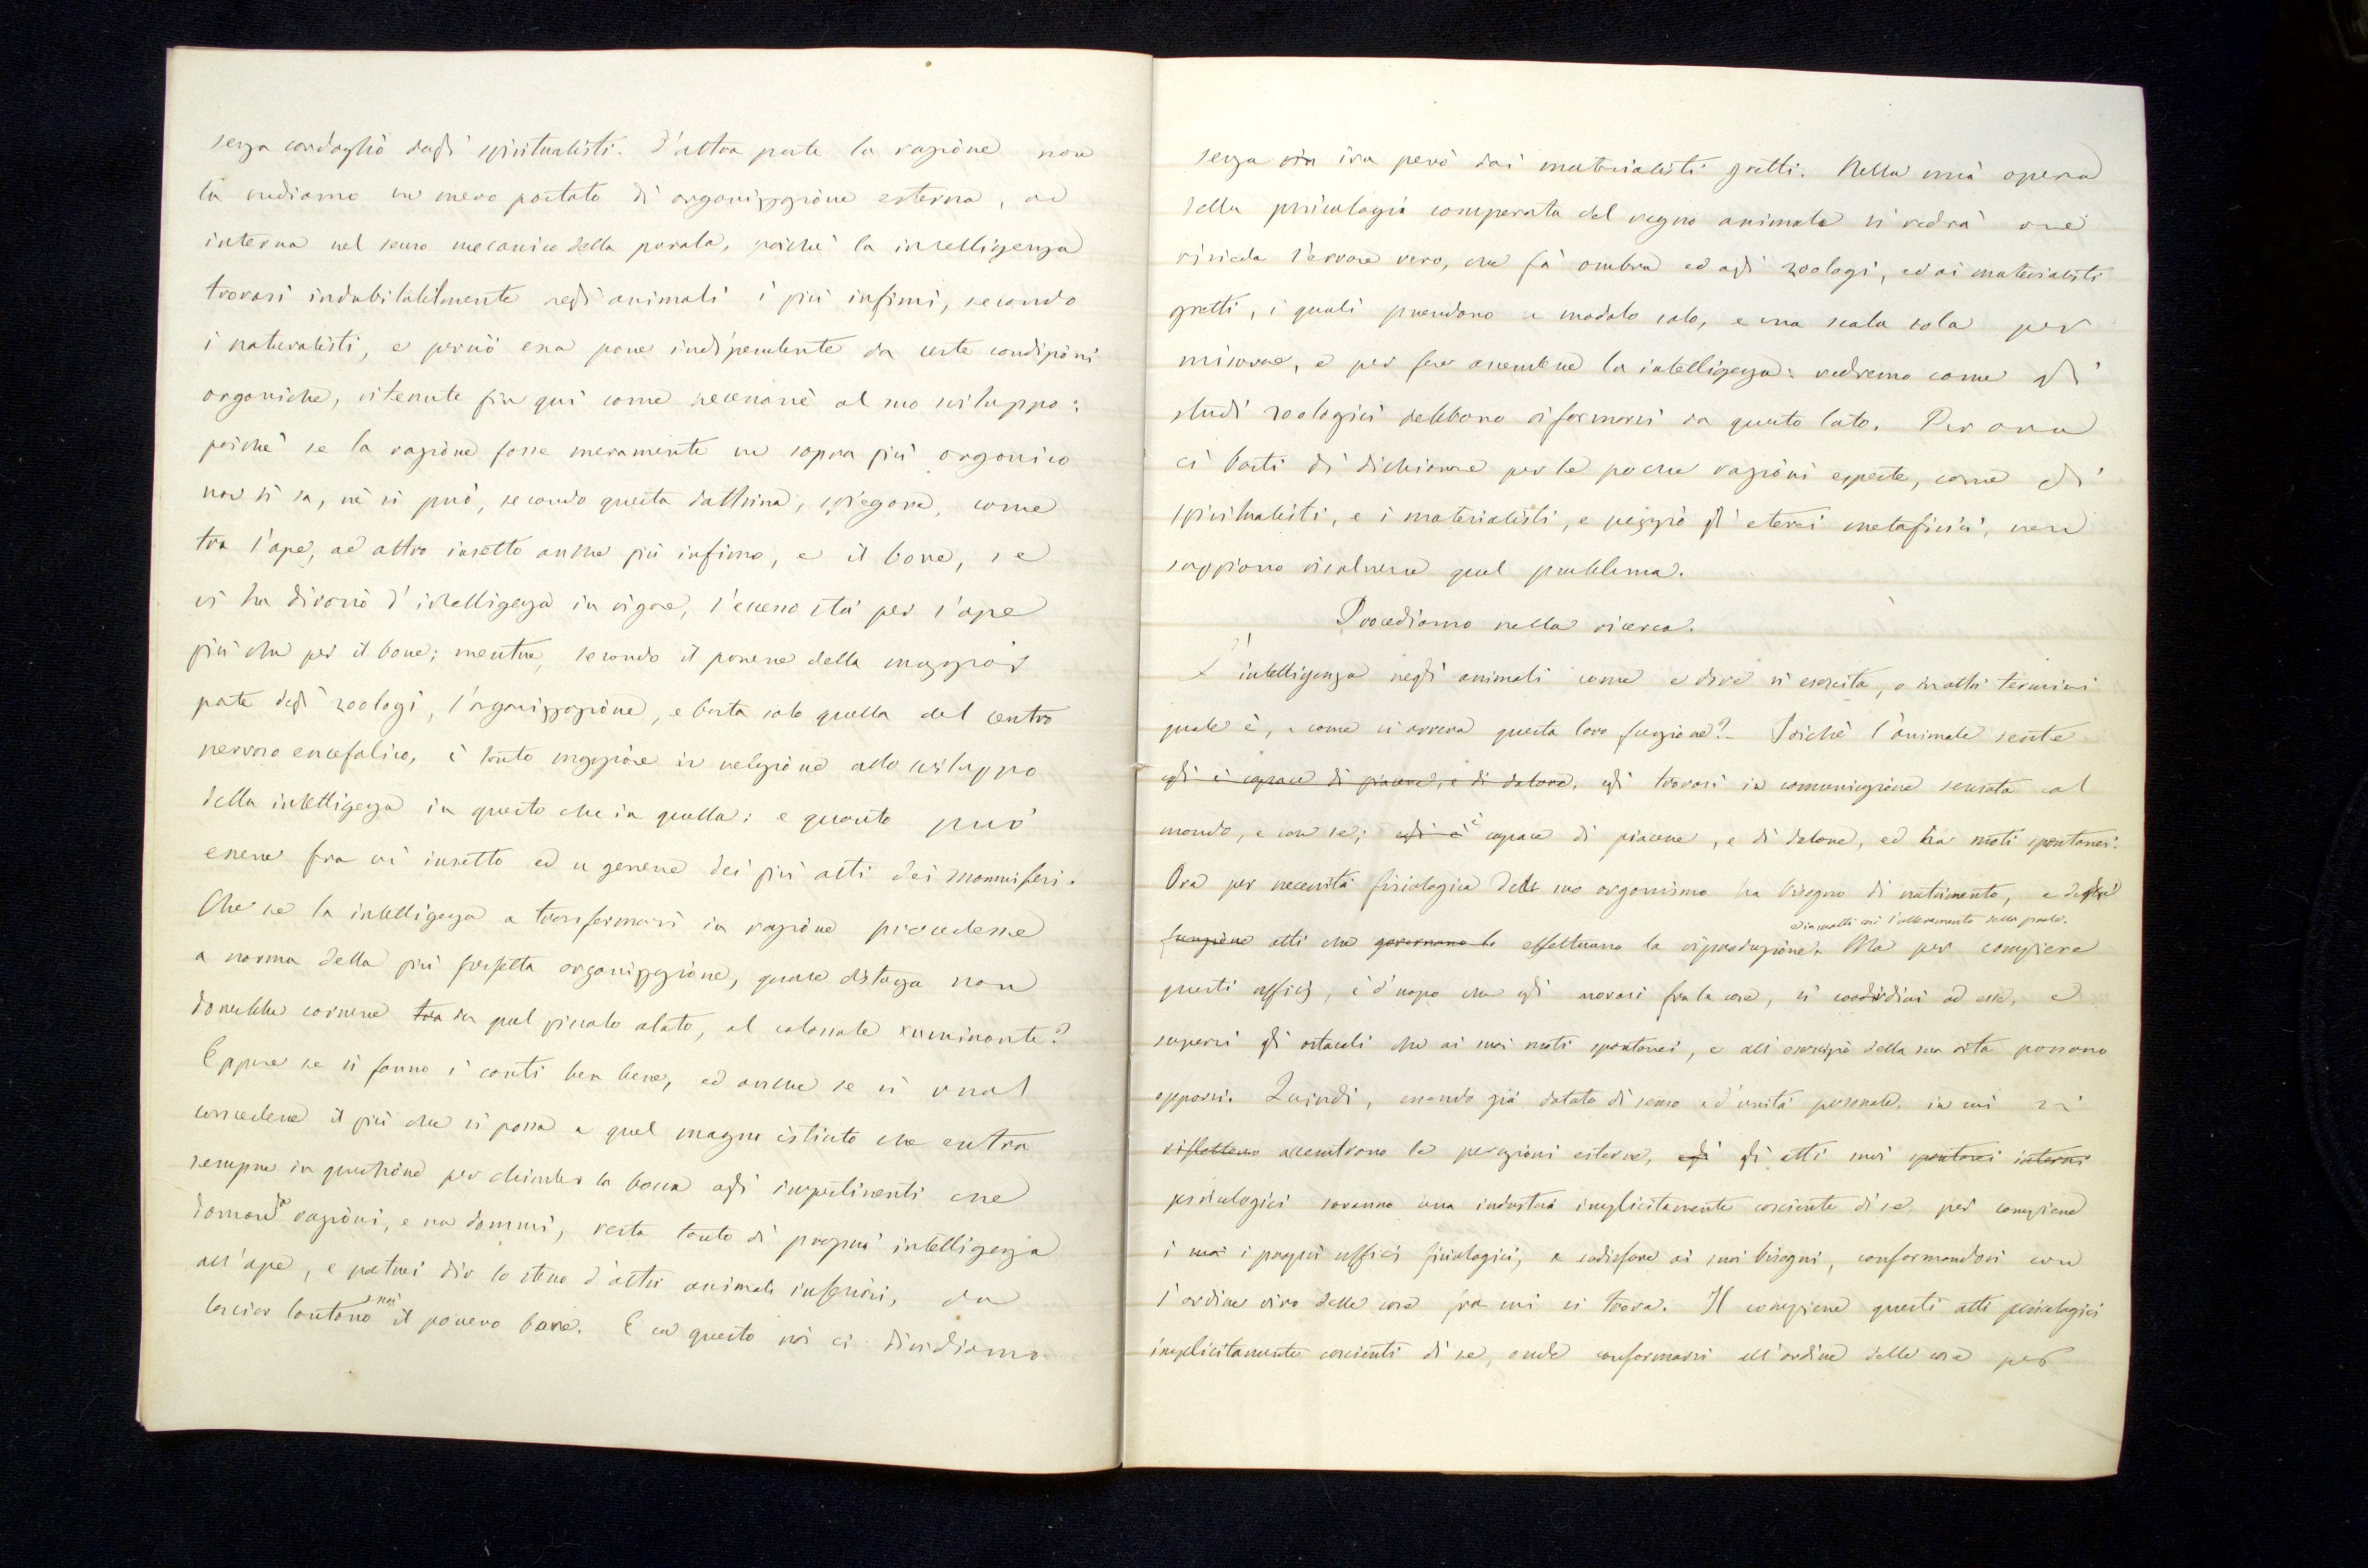 senza cordoglio dagli spiritualisti. D'altra parte la ragione non
la crediamo un mero portato di organizzazione esterna, od
interna nel senso mecanico della parola, poichè la intelligenza
trovasi indubitabilmente negli animali i più infimi, secondo
i naturalisti, e perciò essa pone indipendente da certe condizioni
organiche, ritenute fin qui come necessarie al suo sviluppo:
poichè se la ragione fosse meramente un sopra più organico
non si sa, nè si può, secondo questa dottrina, spiegare, come
tra l'ape, od altro insetto anche più infimo, e il bove, se
vi ha divario d'intelligenza in vigore, l'eccesso sta per l'ape
più che per il bove; mentre, secondo il parere della maggior
parte degli zoologi, l'organizzazione, e basta solo quella del centro
nervoso encefalico, è tanto maggiore in relazione allo sviluppo
della intelligenza in questo che in quella: e quanto può
essere fra un insetto ed un genere dei più alti dei mammiferi.
Che se la intelligenza a trasformarsi in ragione procedesse
a norma della più perfetta organizzazione, quale distanza non
dovrebbe correre tra da quel piccolo alato, al colossale ruminante?
Eppure se si fanno i conti ben bene, ed anche se si vuol
concedere il più che si possa a quel magno istinto che entra
sempre in questione per chiuder la bocca agli impertinenti che
domand ragioni, e non dommi, resta tanto di propria intelligenza
all'ape, e potrei dir lo stesso d'altri animali inferiori, da
lasciar lontano assai il povero bove. E in questo noi ci dividiamo
senza ira però dai materialisti gretti. Nella mia opera
della psicologia comparata del regno animale si vedrà ove
risieda l'errore vero, che fa ombra ed agli zoologi, ed ai materialisti
gretti, i quali prendono un modulo solo, e una scala sola per
misurare, e per fare ascendere la intelligenza: vedremo come gli
studi zoologici debbono riformarsi da questo lato. Per ora
ci basti di dichiarare per le poche ragioni esposte, come gli
spiritualisti, e i materialisti, e peggio gli eterei metafisici, non
sappiano risolvere quel problema.
Procediamo nella ricerca.
L'intelligenza negli animali come e dove si esercita, o in altri termini
quale è, e come si avvera questa loro funzione? Poichè l'animale sente
egli è capace di piacere, e di dolore, egli trovasi in comunicazione sensata col
mondo, e con se; egli è è capace di piacere, e di dolore, ed ha moti spontanei.
Ora per necessità fisiologica dell suo organismo ha bisogno di nutrimento, e degli
e in molti casi l'allevamento della prole.
funzione atti che governano la effettuano la riproduzione. Ma per compiere
questi uffici, è d'uopo che egli muovasi fra le cose, si coordini ad esse, e
superi gli ostacoli che ai suoi moti spontanei, e all'esercizio della sua vita possono
opporsi. Quindi, essendo già dotato di senso ed'unità personale, in cui si
riflettono accentrano le percezioni esterne, egli gli atti suoi spontanei interni
psicologici saranno una industria implicitamente cosciente di se, per compiere
i suoi i propri uffici fisiologici, e sodisfare ai suoi bisogni, conformandosi con
l'ordine vivo delle cose fra cui si trova. Il compiere questi atti psicologici
implicitamente coscienti di se, onde conformarsi all'ordine delle cose per